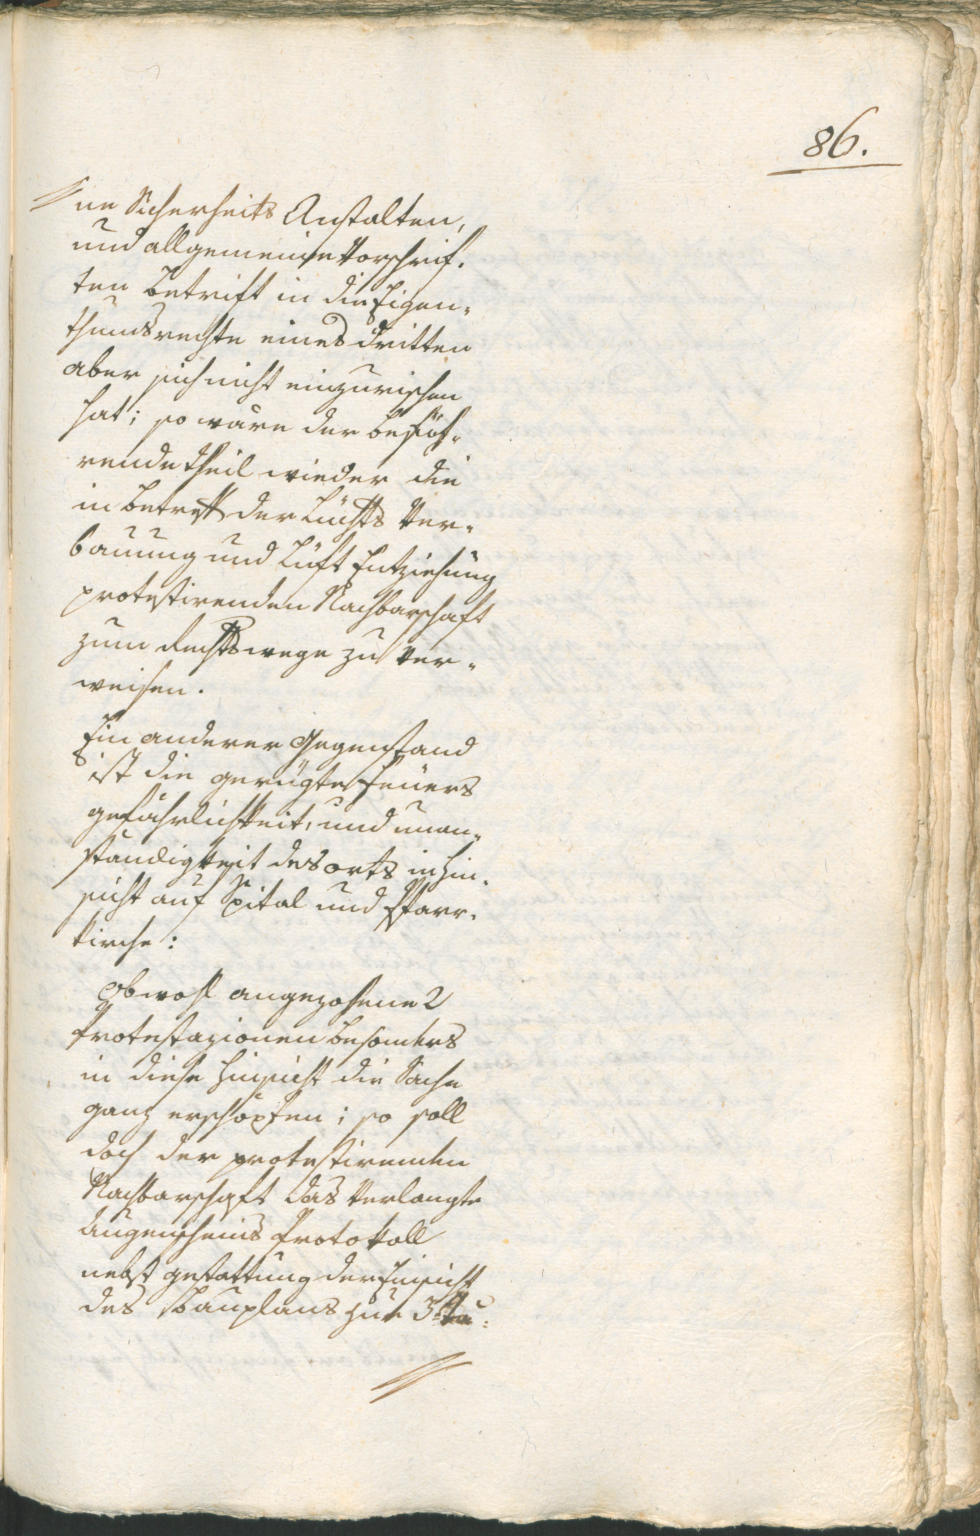 86.
ne Sicherheits Anstalten,
und allgemeine Vorschrif-
ten betrift in die Eigen-
thumsrechte eines dritten
aber sich nicht einzumischen
hat; so wäre der
rende theil wieder die
in betreff der Lichts Ver-
bauung und Luft Entziehung
protestirenden Nachbarschaft
zum Rechtswege zu ver-
weisen.
Ein anderer Gegenstand
ist die gerügte Feuers
gefährlichkeit, und unan-
ständigkeit des orts in Hin-
sicht auf Spital und Pfarr-
kirche:
Obwohl angezohene 2
Protestazionen besonders
in diese Hinsicht die Sache
ganz erschöpfen; so soll
doch der protestirenden
Nachbarschaft das verlangte
Augenscheins Protokoll
nebst gestattung der Einsicht
des Bauplans zur 3